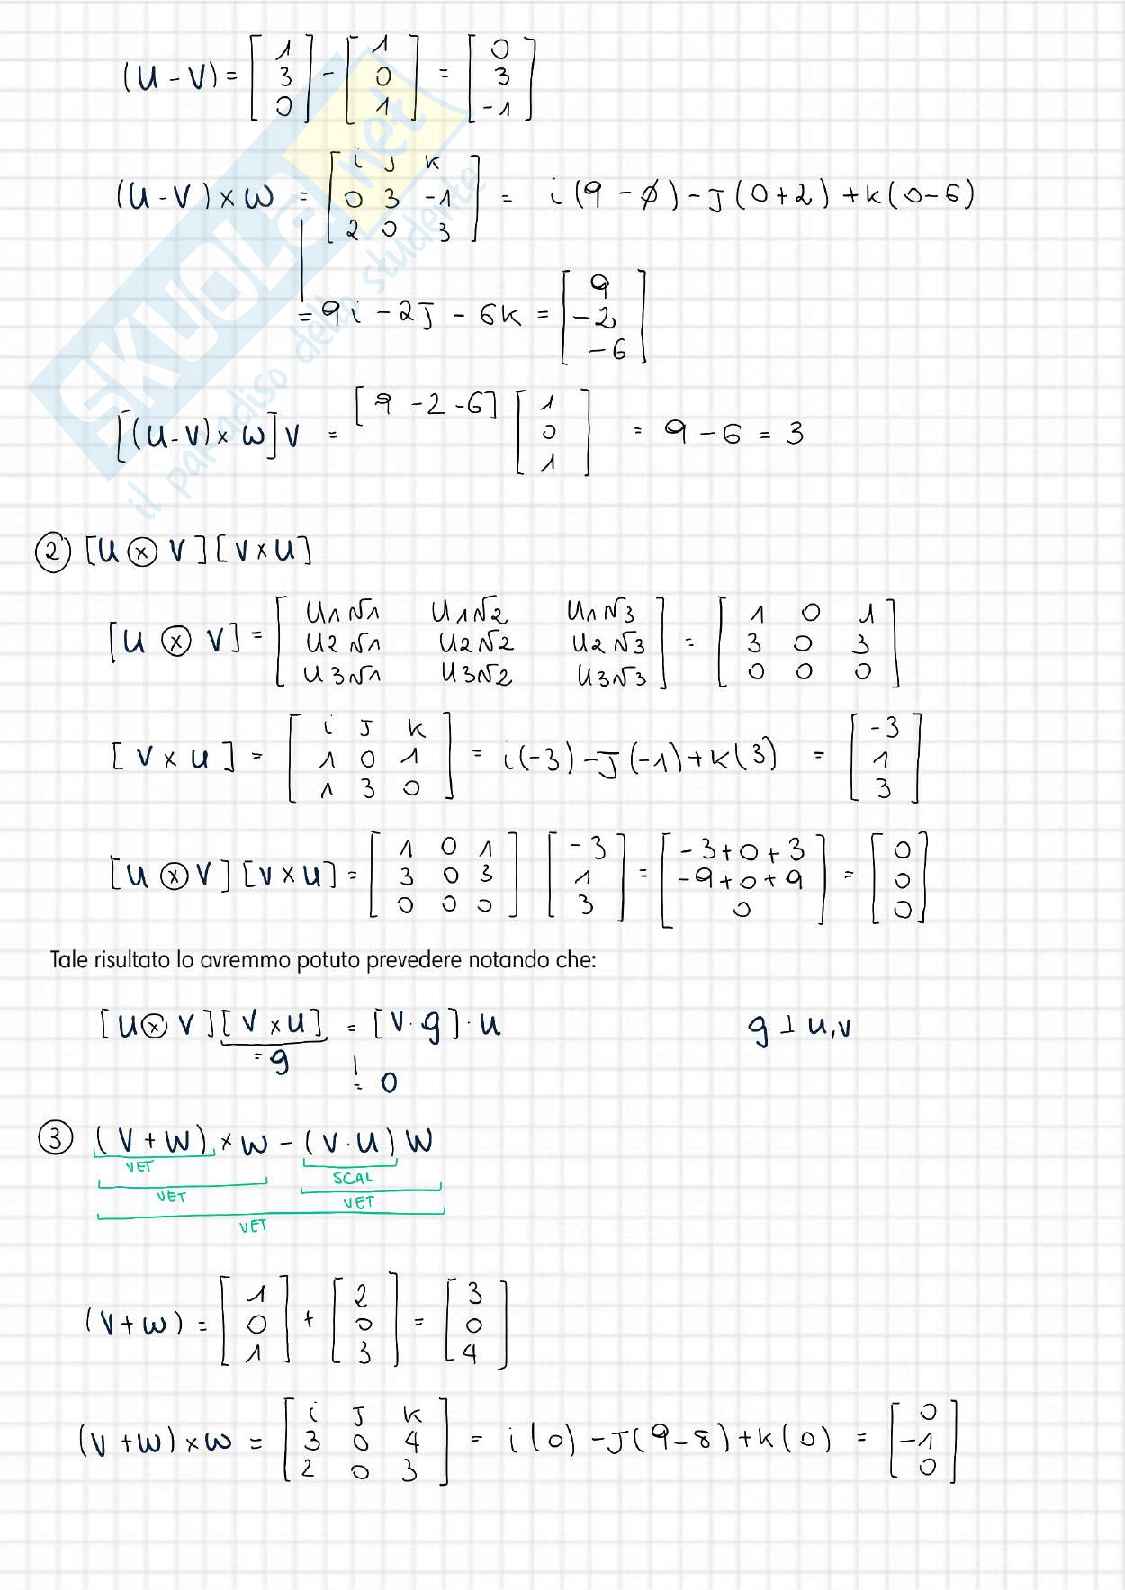 (U - V) = [1 3 0] - [1 0 1] = [0 3 -1]
(U - V) × W = [i J K
0 3 -1
2 0 3] = i(9 - 0) - J(0+2) + K(0-6)
= 9i - 2J - 6K = [9 -2 -6]
[(U - V) × W]V = [9 -2 -6] [1 0 1] = 9 - 6 = 3
② [U ⊗ V][V × U]
[U ⊗ V] = [U1V1 U1V2 U1V3
U2V1 U2V2 U2V3
U3V1 U3V2 U3V3] = [1 0 1
3 0 3
0 0 0]
[V × U] = [i J K
1 0 1
1 3 0] = i(-3) - J(-1) + K(3) = [-3 1 3]
[U ⊗ V][V × U] = [1 0 1
3 0 3
0 0 0] [-3 1 3] = [-3+0+3
-9+0+9
0] = [0 0 0]
Tale risultato lo avremmo potuto prevedere notando che:
[U ⊗ V][V × U] = [V · g] · U g ⊥ U, V
= g
= 0
③ (V + W) × W - (V · U) W
VET
SCAL
VET
VET
VET
(V + W) = [1 0 1] + [2 0 3] = [3 0 4]
(V + W) × W = [i J K
3 0 4
2 0 3] = i(0) - J(9-8) + K(0) = [0 -1 0]
SKUOLA.net
il paradiso dello studente